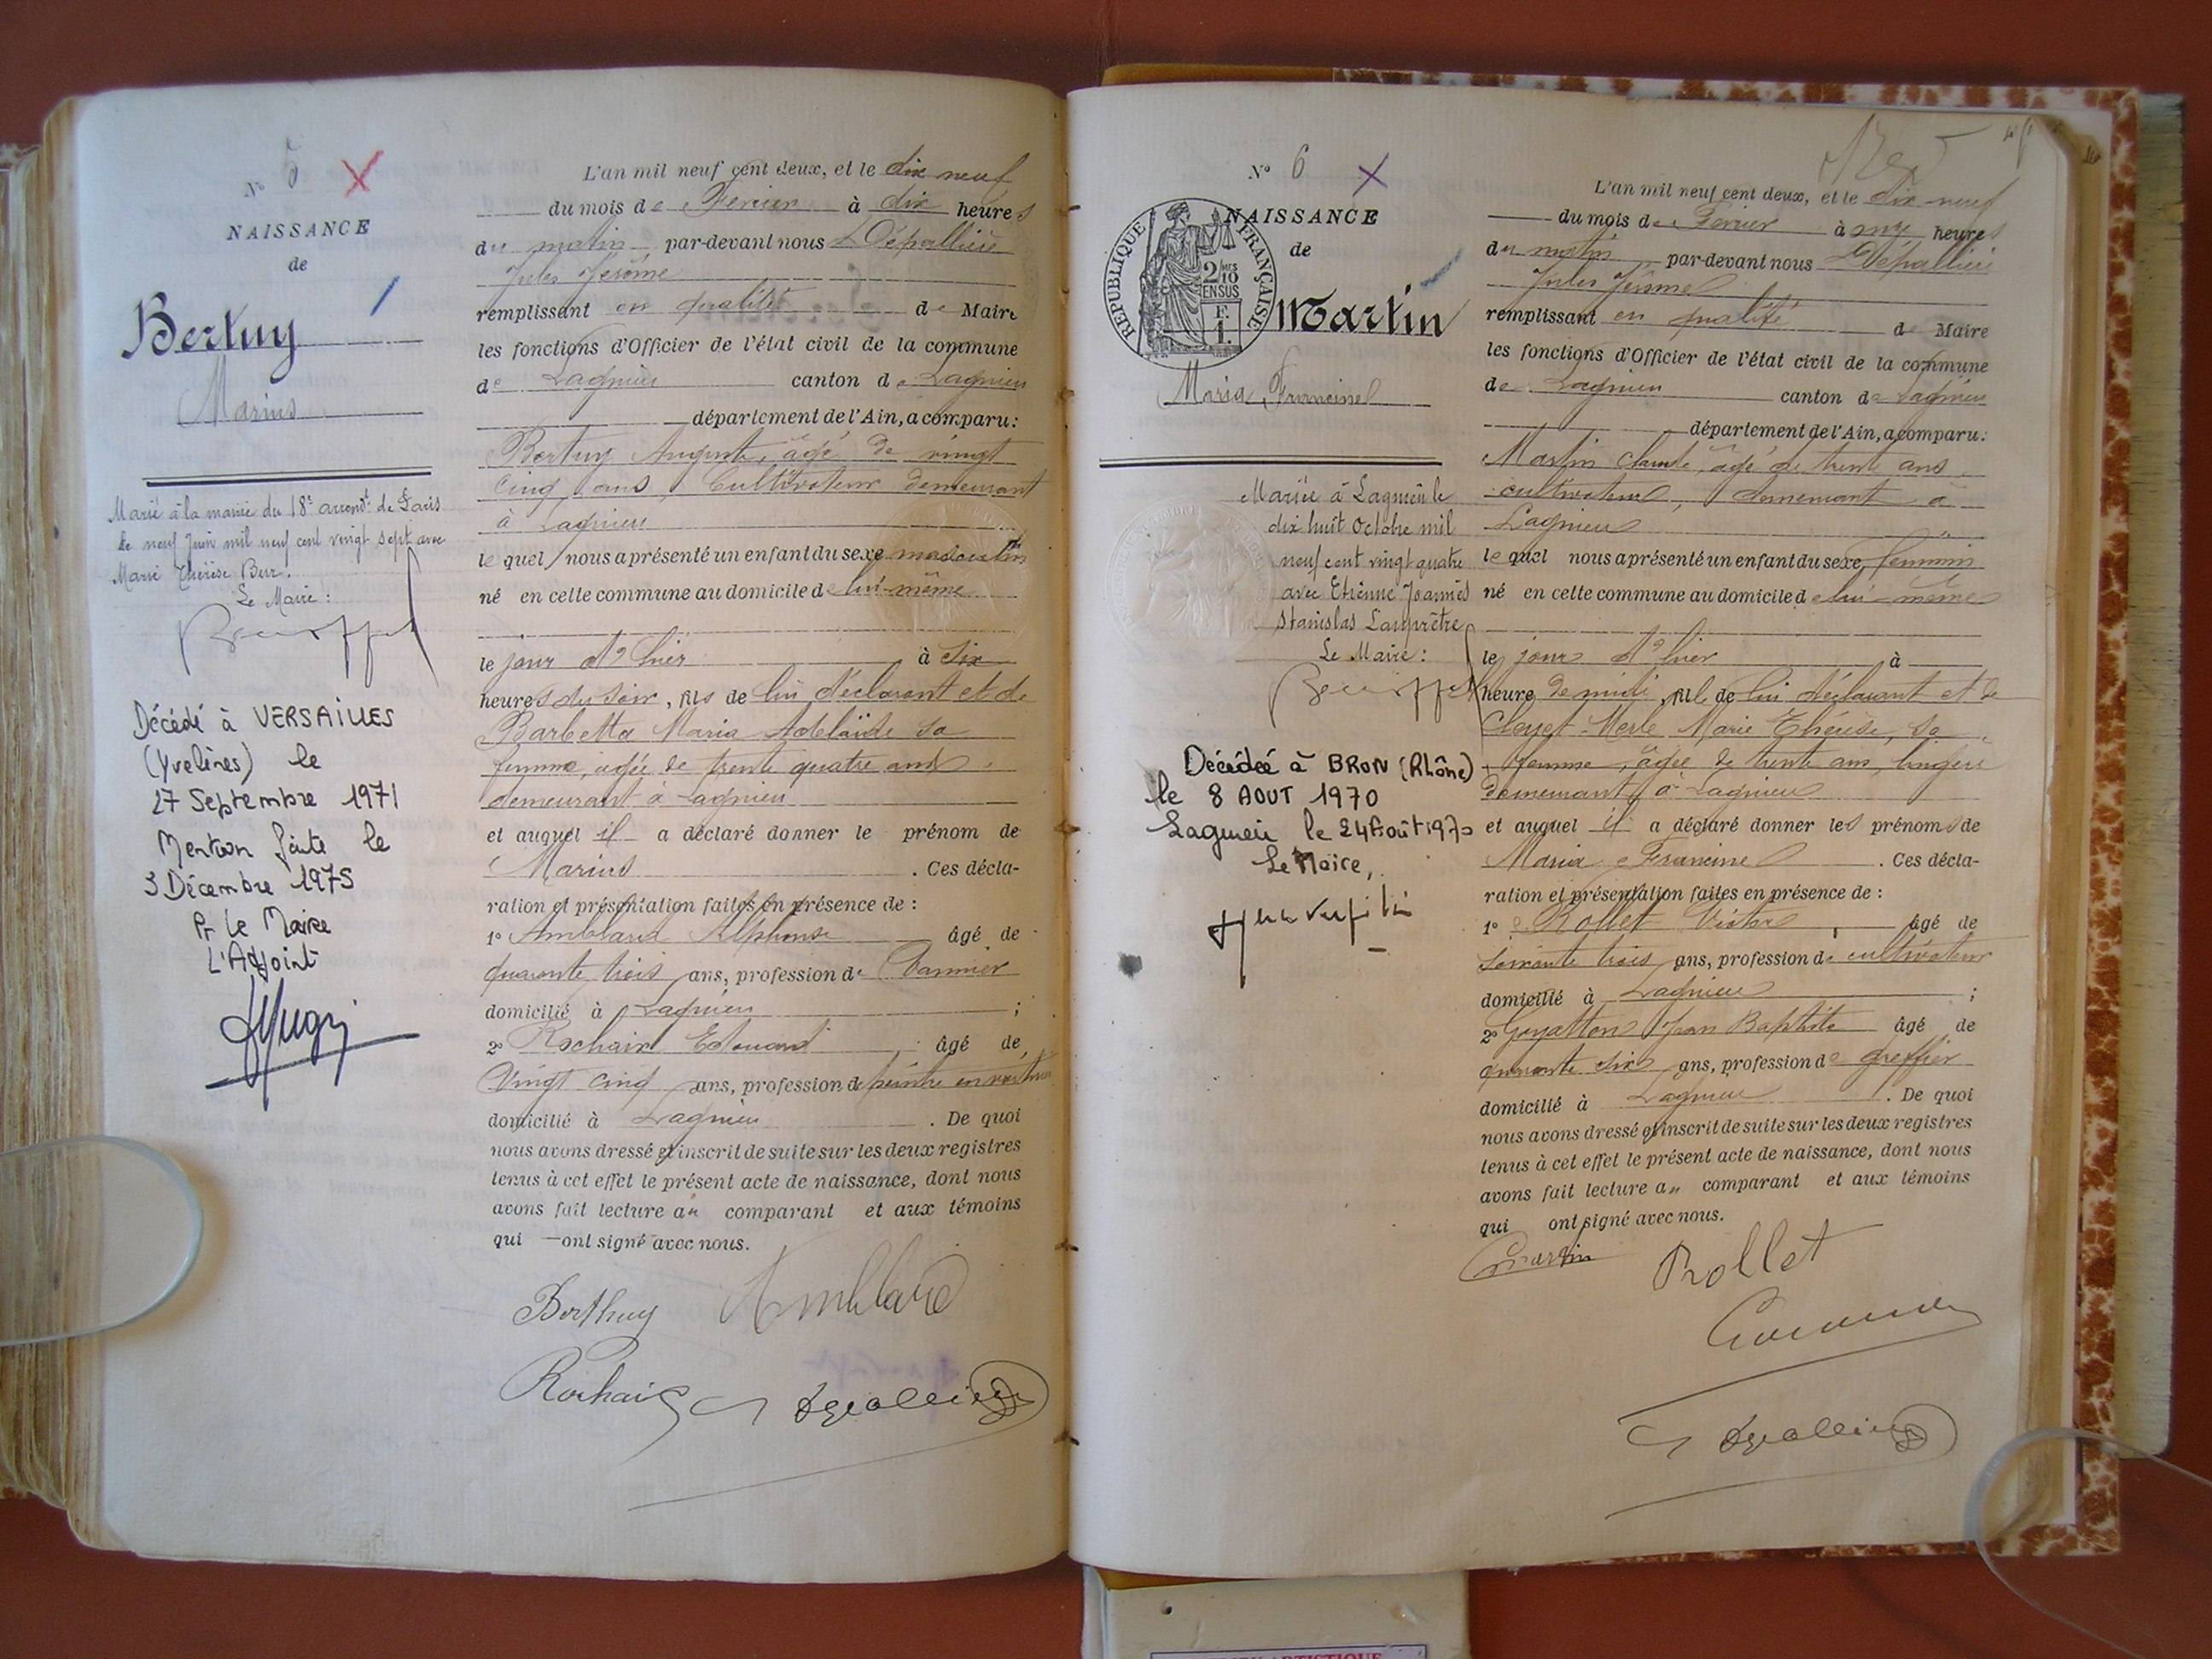 N° 5
NAISSANCE
de
Bertuy
Marius
Marié à la mairie du 18e arrondt de Paris
le neuf Juin mil neuf cent vingt sept avec
Marie Thérèse Beur.
Le Maire :
Décédé à VERSAILLES
(Yvelines) le
27 Septembre 1971
Mention faite le
3 Décembre 1975
Pr le Maire
L'Adjoint
L'an mil neuf cent deux, et le dix neuf
du mois de Février à dix heures
du matin par-devant nous Dépallière
Jules Jérôme
remplissant en qualité de Maire
les fonctions d'Officier de l'état civil de la commune
de Lagnieu canton de Lagnieu
département de l'Ain, a comparu :
Bertuy Auguste, âgé de vingt
cinq ans, Cultivateur demeurant
à Lagnieu
lequel nous a présenté un enfant du sexe masculin
né en cette commune au domicile de lui-même
le jour d'hier à six
heures du soir, fils de lui déclarant et de
Barbetta Maria Adelaïde sa
femme, âgée de trente quatre ans
demeurant à Lagnieu
et auquel il a déclaré donner le prénom de
Marius . Ces décla-
ration et présentation faites en présence de :
1° Amblard Alphonse âgé de
quarante trois ans, profession de Vannier
domicilié à Lagnieu ;
2° Rochaix Edouard âgé de
Vingt cinq ans, profession de peintre en
domicilié à Lagnieu . De quoi
nous avons dressé et inscrit de suite sur les deux registres
tenus à cet effet le présent acte de naissance, dont nous
avons fait lecture au comparant et aux témoins
qui ont signé avec nous.
Berthuy Amblard
Rochaix
N° 6
NAISSANCE
de
RÉPUBLIQUE FRANÇAISE
2/10 MES
EN SUS
F.
1.
Martin
Maria Francine
Mariée à Lagnieu le
dix huit Octobre mil
neuf cent vingt quatre
avec Etienne Joannès
Stanislas Lamprêtre
Le Maire :
Décédée à BRON (Rhône)
le 8 AOUT 1970
Lagnieu le 24 Août 1970
Le Maire,
L'an mil neuf cent deux, et le dix neuf
du mois de Février à onze heures
du matin par-devant nous Dépallière
Jules Jérôme
remplissant en qualité de Maire
les fonctions d'Officier de l'état civil de la commune
de Lagnieu canton de Lagnieu
département de l'Ain, a comparu :
Martin Claude, âgé de trente ans
cultivateur, demeurant à
Lagnieu
lequel nous a présenté un enfant du sexe féminin
né en cette commune au domicile de lui-même
le jour d'hier à
heure de midi, fille de lui déclarant et de
Cleyet-Merle Marie Thérèse, sa
femme, âgée de trente ans, lingère
demeurant à Lagnieu
et auquel il a déclaré donner les prénoms de
Maria Francine . Ces décla-
ration et présentation faites en présence de :
1° Rollet Victor, âgé de
soixante trois ans, profession de cultivateur
domicilié à Lagnieu ;
2° Goyatton Jean Baptiste âgé de
quarante six ans, profession de greffier
domicilié à Lagnieu . De quoi
nous avons dressé et inscrit de suite sur les deux registres
tenus à cet effet le présent acte de naissance, dont nous
avons fait lecture au comparant et aux témoins
qui ont signé avec nous.
Martin Rollet